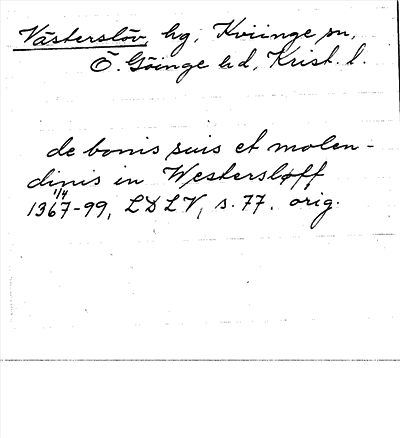 Västerslöv, hg, Kviinge sn,
Ö. Göinge hd, Krist. l.
de bonis suis et molen-
dinis in Westersløff
1/4
1367-99, LDLV, s. 77. orig.